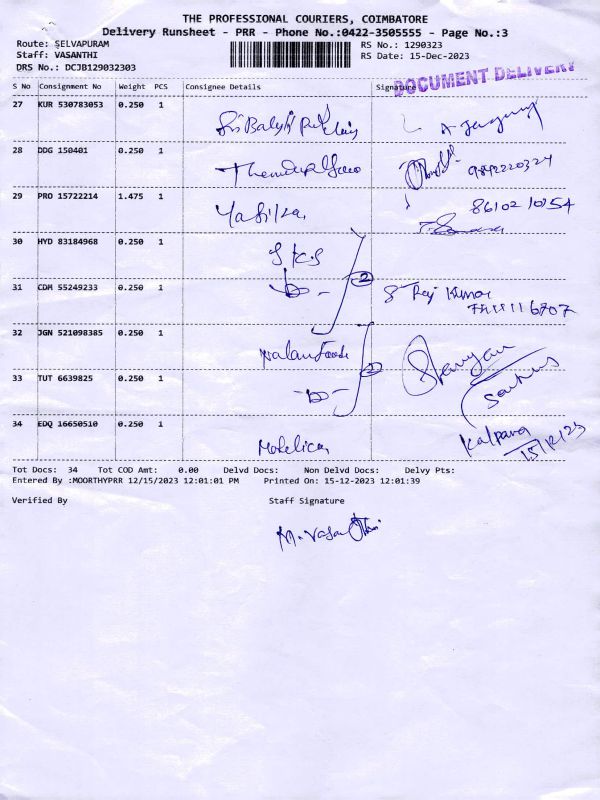 THE PROFESSIONAL COURIERS, COIMBATORE
Delivery Runsheet - PRR - Phone No.:0422-3505555 - Page No.:3
Route: SELVAPURAM
Staff: VASANTHI
DRS No.: DCJB129032303
RS No.: 1290323
RS Date: 15-Dec-2023
DOCUMENT DELIVERY
S No Consignment No Weight PCS Consignee Details Signature
27 KUR 530783053 0.250 1
28 DDG 150401 0.250 1
9842220324
29 PRO 15722214 1.475 1
8610210154
30 HYD 83184968 0.250 1 SKS
31 CDM 55249233 0.250 1 -D- 2 S Raj Kumar
32 JGN 521098385 0.250 1
33 TUT 6639825 0.250 1 -D- 2
34 EDQ 16650510 0.250 1 Kalpana
15/12/23
Tot Docs: 34 Tot COD Amt: 0.00 Delvd Docs: Non Delvd Docs: Delvy Pts:
Entered By :MOORTHYPRR 12/15/2023 12:01:01 PM Printed On: 15-12-2023 12:01:39
Verified By Staff Signature
M. Vasanthi